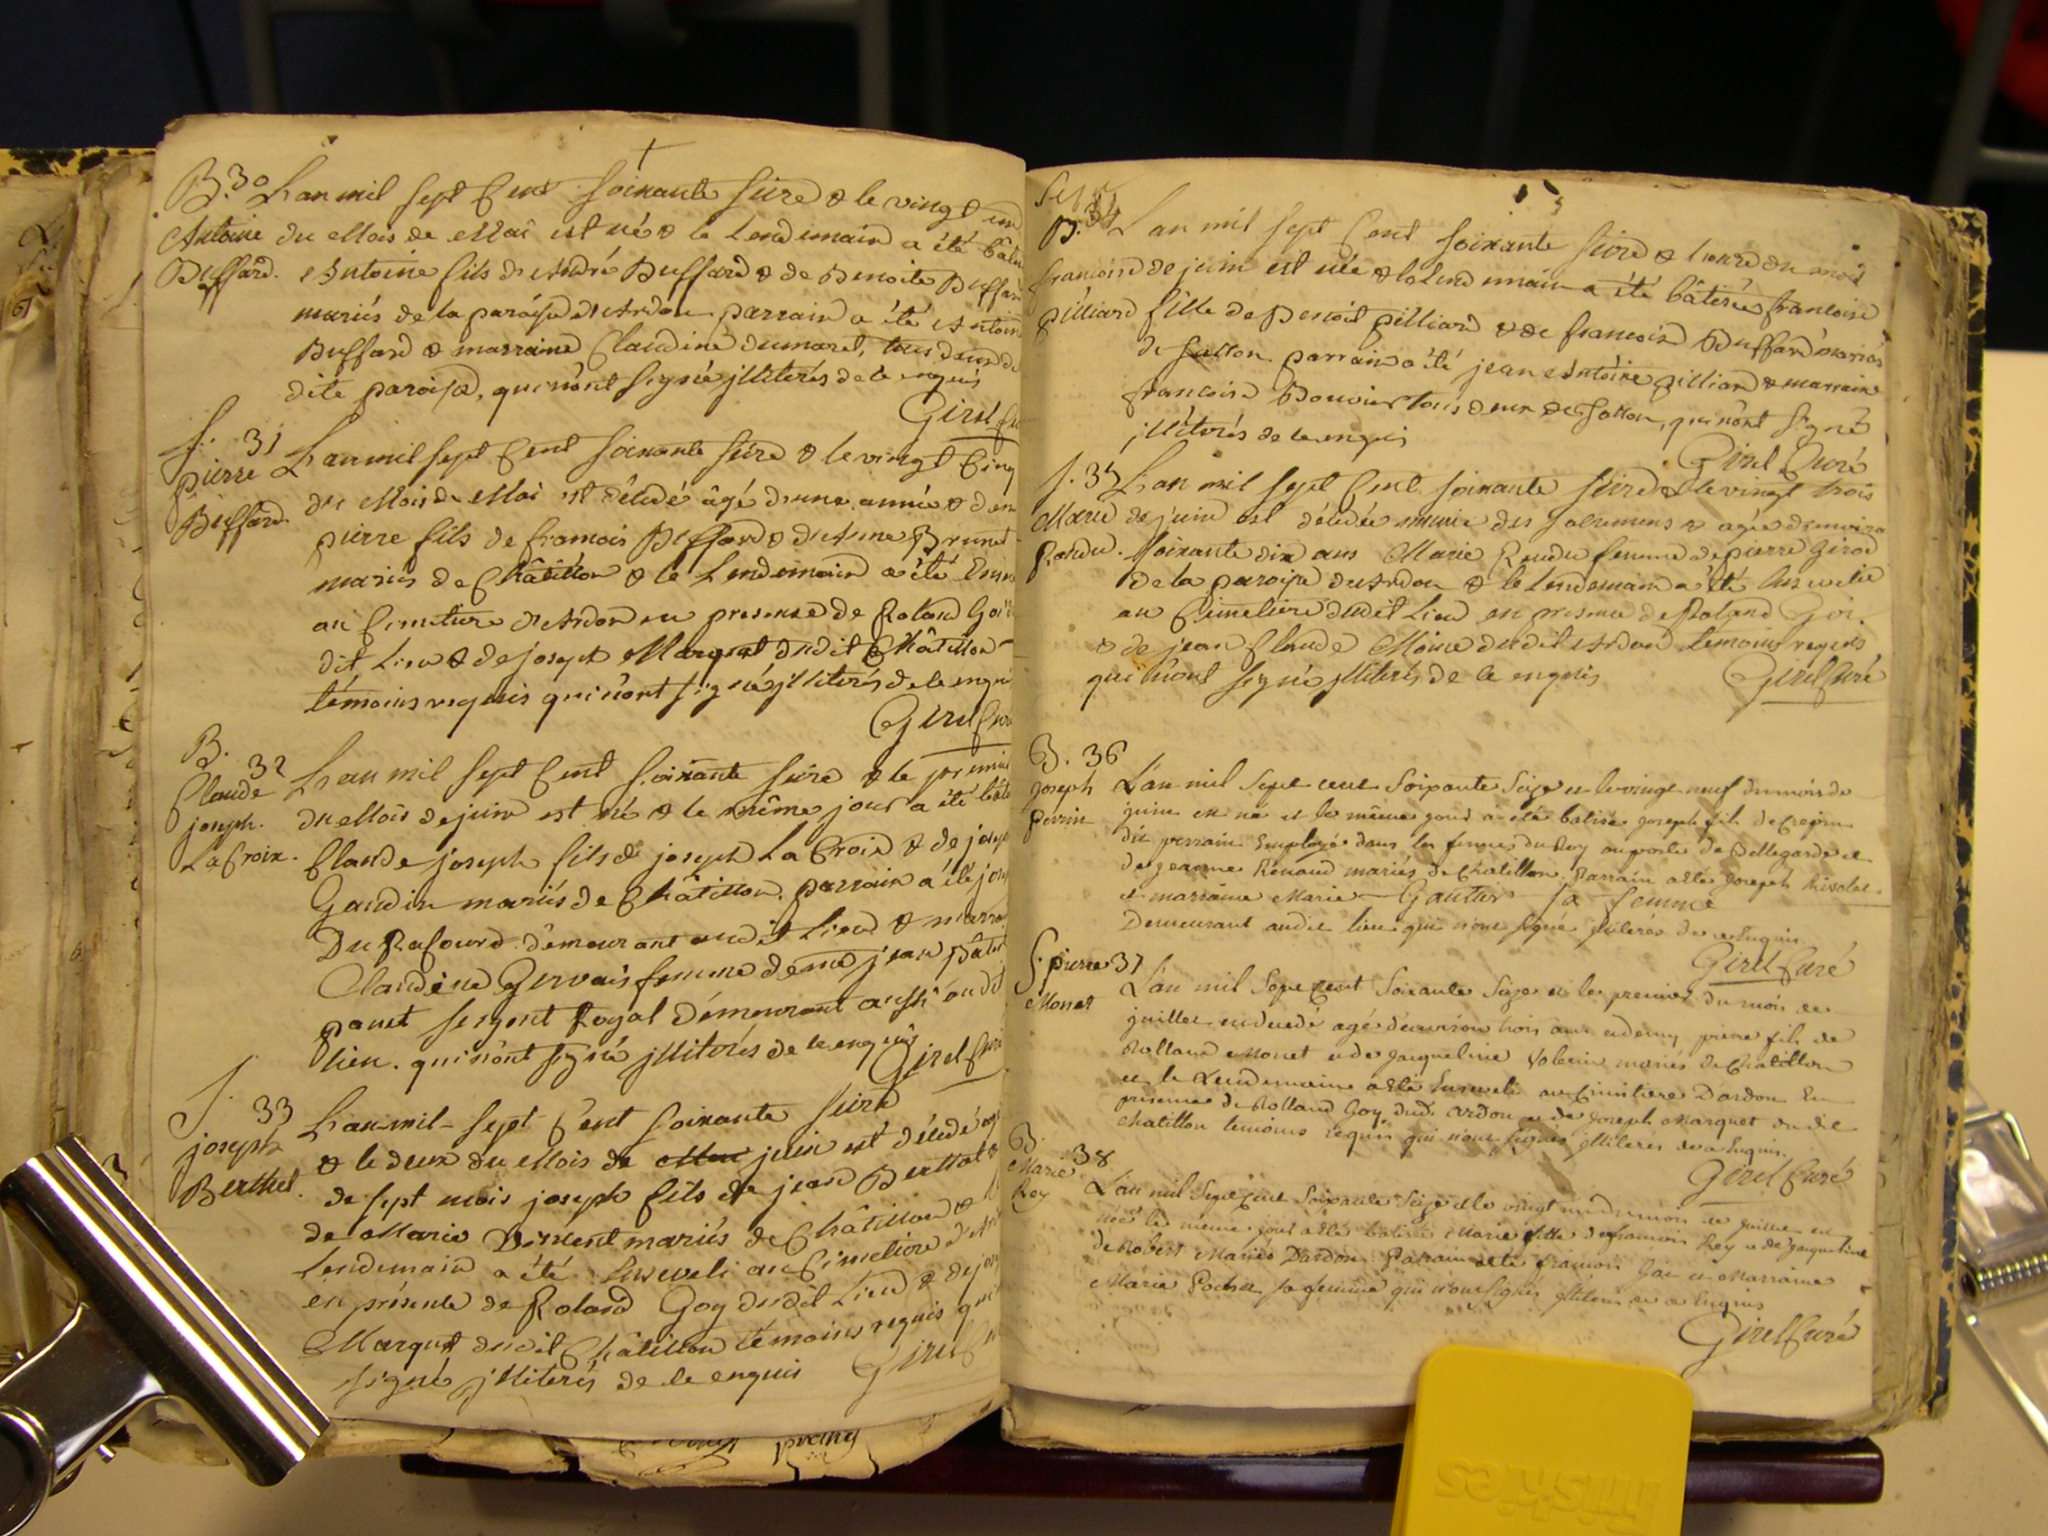 B. 30 L'an mil sept Cent soixante seize & le vingt un
Antoine du Mois de Maî est né & le Lendemain a été bâti
Buffard. Antoine fils d'André Buffard & de Benoite Buffar
mariés de la paroisse d'Ardon parrain a été Antoine
Buffard & marraine Claudine dumaret, tous deux de
dite paroisse, qui n'ônt signé illiterés de ce enquis
Girel Cu
S. 31
pierre L'an mil sept Cent soixante seize & le vingt Cinq
Buffard. du Mois de Maî est décédé âgé d'une année & dem
pierre fils de francois Buffard & d'Anne Brunet
mariés de Châtillon & le Lendemain a été Ense
au Cimetiere d'Ardon en presence de Roland Goi
dit Lieu & de joseph Marquet dudit Châtillon
témoins requis qui n'ont signé illiterés de ce enqui
Girel Curé
B. 32
Claude joseph. La Croix. L'an mil sept Cent soixante seize & le premie
du Mois de juin est né & le même jour a été batis
Claude joseph fils de joseph La Croix & de josep
Gaudin mariés de Châtillon. parrain a été jos
Du Rafourd demeurant audit Lieu & marra
Claudine Gervais femme de me jean Bâti
panet sergent Royal Démeurant aussi audit
lieu. qui n'ônt signé illiterés de ce enquis
Girel Curé
S. 33
joseph Berthet. L'an mil sept Cent soixante seize
& le deux du Mois de juin est décédé agé
de sept mois joseph fils de jean Berthet &
de Marie mariés de Châtillon &
lendemain a été Enseveli au Cimetiere d'Ar
en présence de Roland Goy dudit Lieu & de jos
Marquet dudit Châtillon témoins requis qui
signé illiterés de ce enquis Girel Cu
B. 34 L'an mil sept Cent soixante seize & l'onze du mois
francoise de juin est née & le Lendemain a été bâtisée francoise
pilliard fille de Benoit pilliard & de francoise Buffard mariés
de parrain a été jean Antoine pilliard & marraine
francoise Bouvier tous deux de qui n'ônt signé
illiterés de ce enquis
Girel Curé
S. 35 L'an mil sept Cent soixante seize & le vingt trois
Marie de juin est décédée munie des sacremens & agée d'environ
Randu. soixante dix ans Marie Rendu femme de pierre Girod
de la paroisse d'Ardon & le Lendemain a été Ensevelie
au Cimetiere dudit Lieu en presence de Roland Goi.
& de jean Claude Moine dudit Ardon témoins requis
qui n'ônt signé illiterés de ce enquis
Girel Curé
B. 36
joseph perrin L'an mil sept cent soixante seize et le vingt neuf du mois de
juin est né et le même jour a été batisé joseph fils de Crepin
dit perrain Employé dans les fermes du Roy au poste de Bellegarde et
de jeanne Renaud mariés de Chatillon. Parrain a été joseph
et marraine Marie Gautier sa femme
Demeurant audit lieu qui n'ont signé illiterés de ce Enquis
Girel Curé
S. pierre 37
Monet L'an mil sept Cent soixante seize et le premier du mois de
juillet est décédé agé d'environ trois ans et demy pierre fils de
Rolland Monet et de jacqueline mariés de Chatillon
et le Lendemain a été Enseveli au Cimitiere D'ardon En
presence de Rolland Goy dud. ardon et de joseph Marquet du dit
Chatillon temoins requis qui n'ont signés illiteres de ce Enquis
Girel Curé
B.
Marie 38
Rey L'an mil sept Cent soixante seize et le vingt un du mois de juillet est
née le meme jour a été batisée Marie fille de francois Rey et de jacqueline
de Robert Mariés D'ardon Parrain a été francois et Marraine
Marie Pochet sa femme qui n'ont signés illiteres de ce Enquis
Girel Curé
friskies